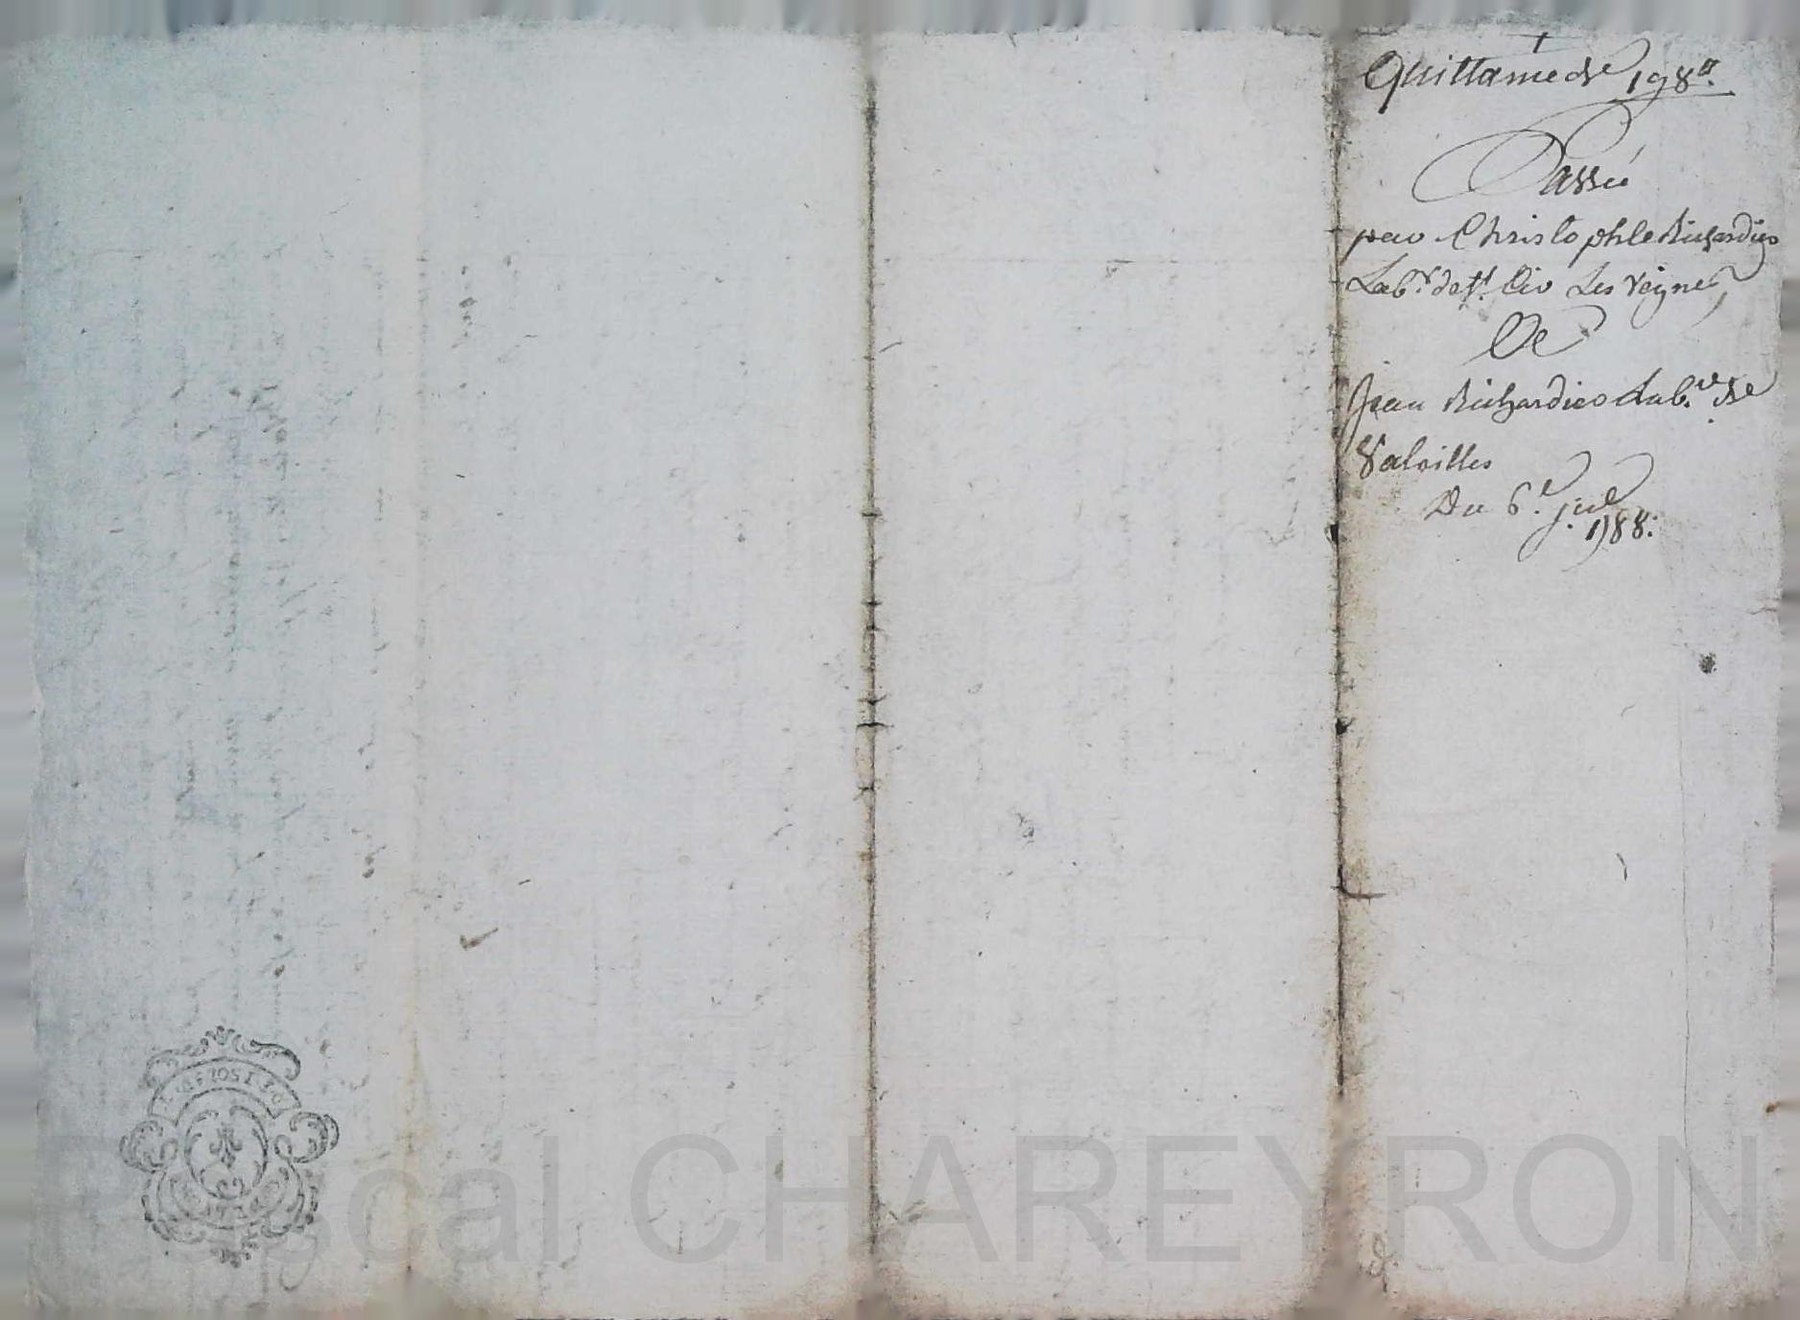 Quittance de 198 ll.
Passée
par Christophle Richardier
Lab.r de st. Cir Les Vignes
De
Jean Richardier Lab.r de
Valeilles
Du 6.e
1788.
Pascal CHAREYRON